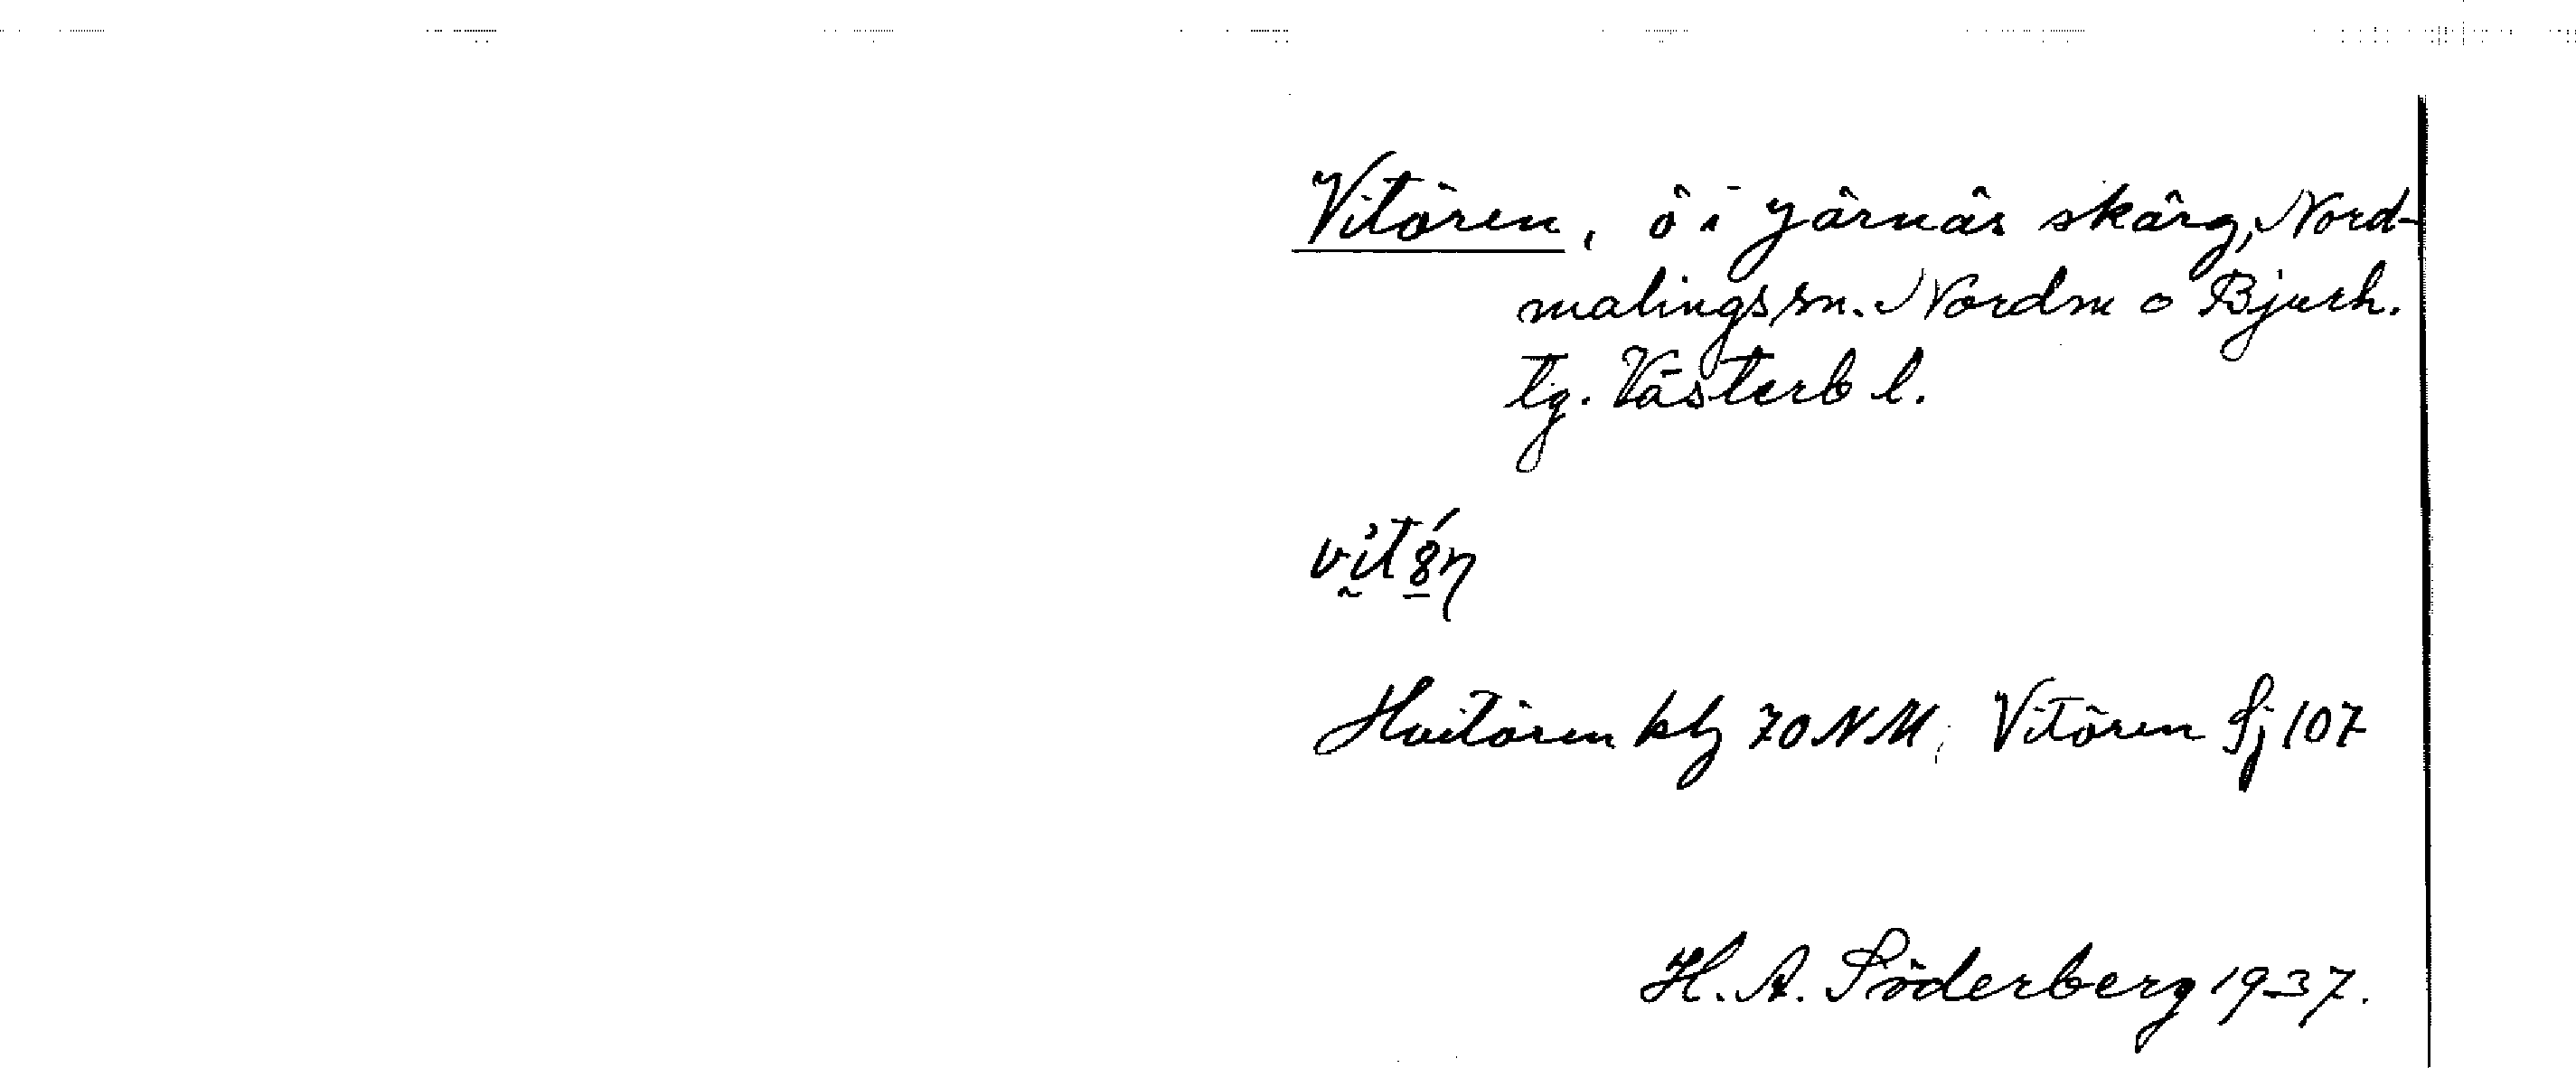 Vitören, ö i Järnäs skärg, Nord-
malings sn. Nordm o Bjurh.
tg. Västerb l.
Hvitören kbl 70 NM; Vitören Sj 107
H. A. Söderberg 1937.